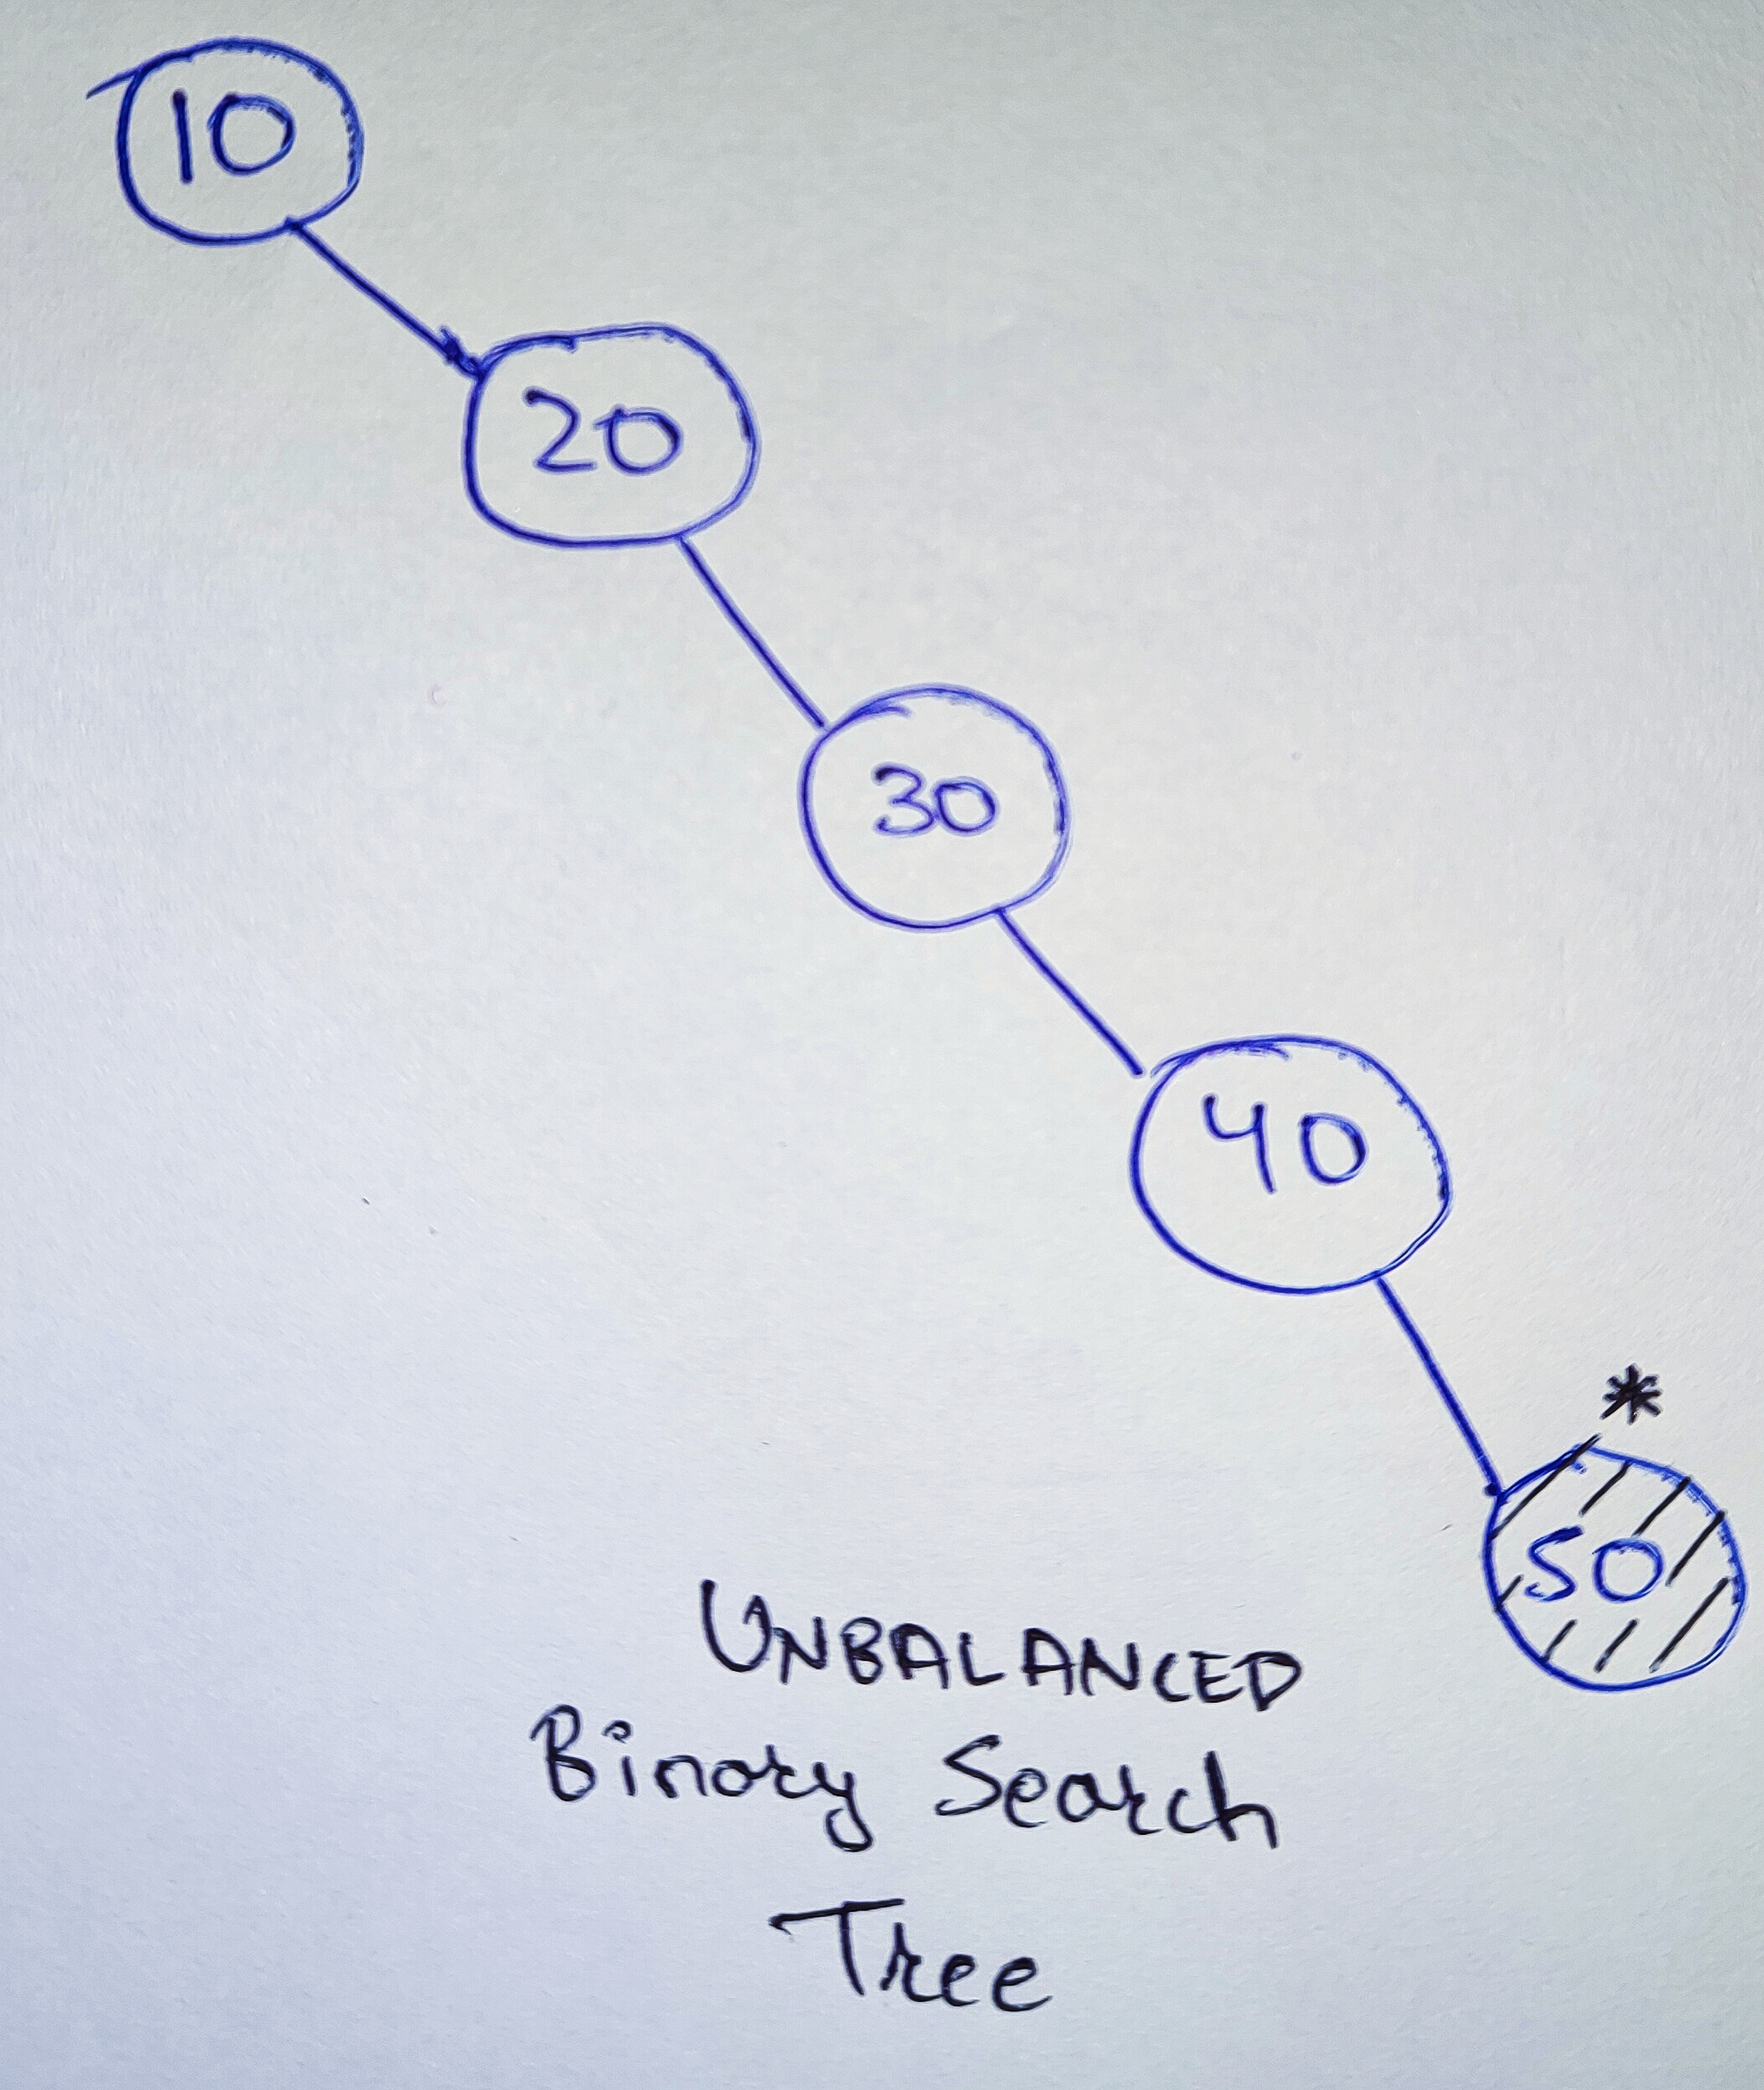 10
20
30
40
*
50
UNBALANCED
Binary Search
Tree